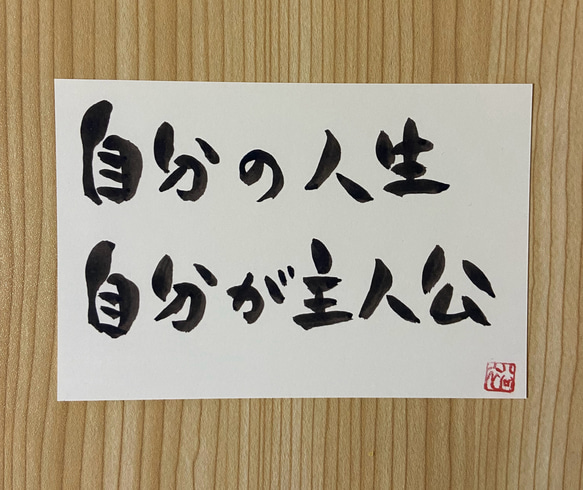 自分の人生
自分が主人公